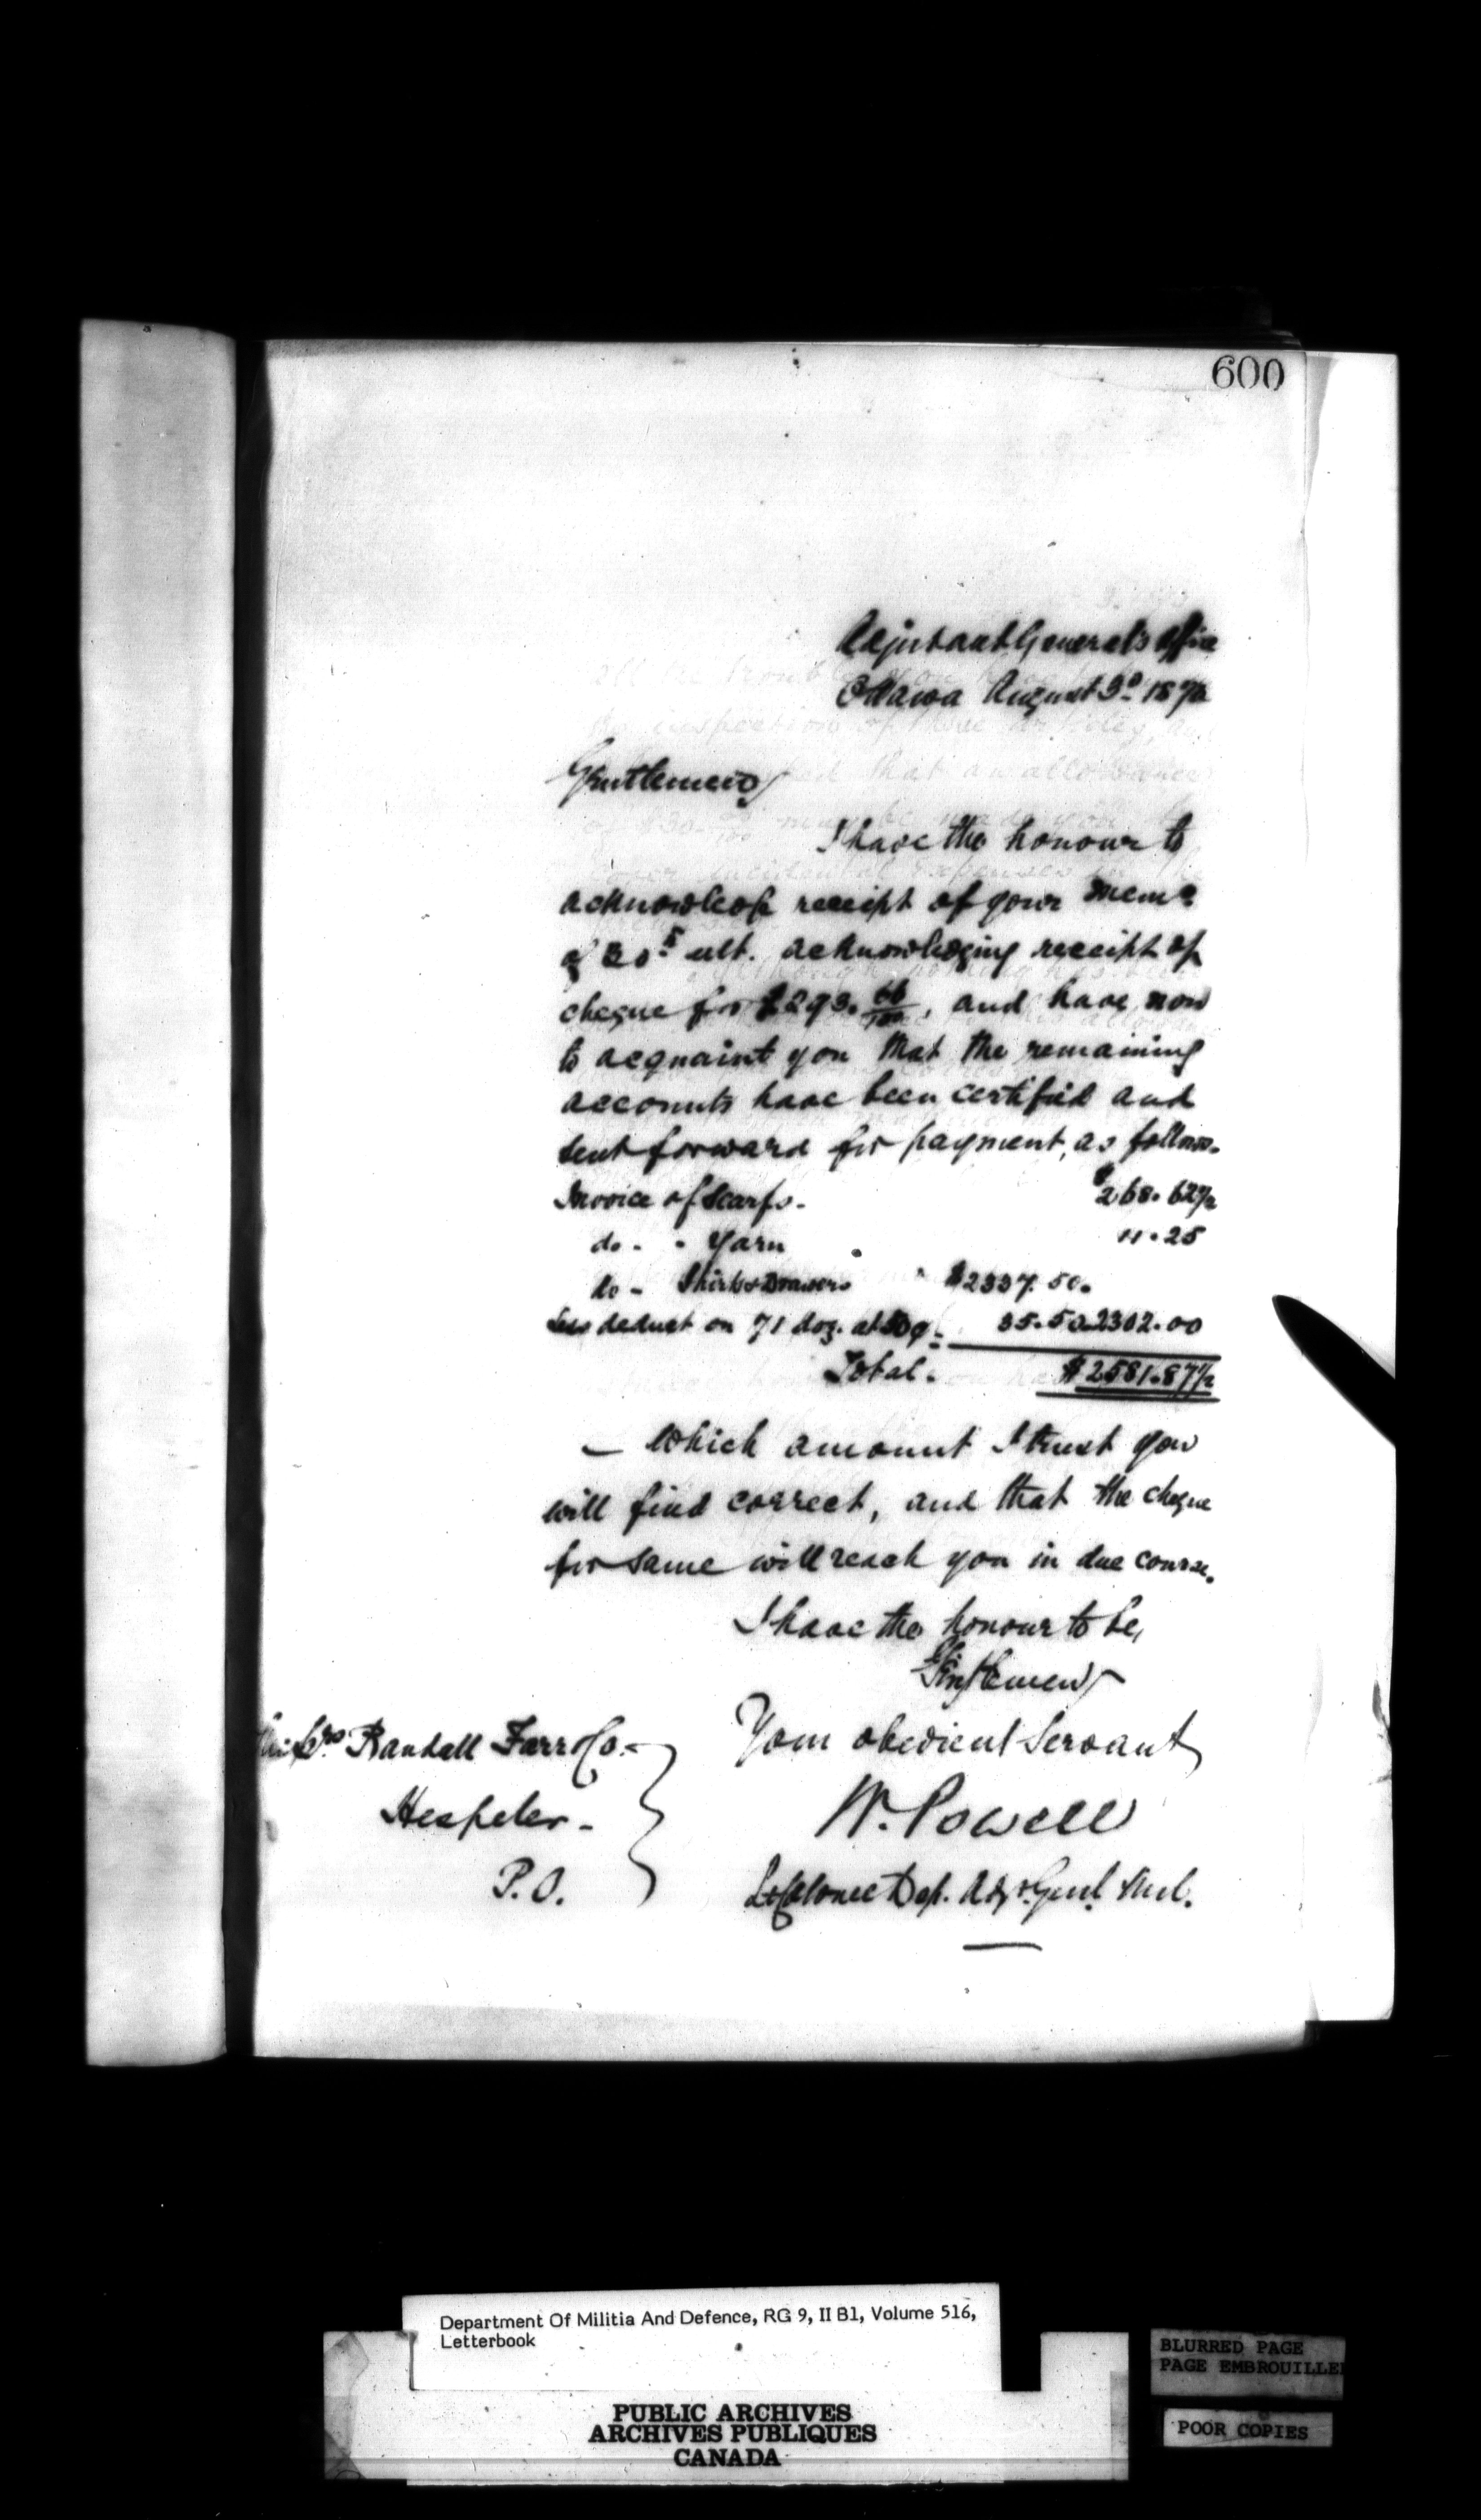 600
Adjutant General's Office
Ottawa August 3d 187
Gentlemen,
I have the honour to
acknowledge receipt of your Memo
of 30th ult. acknowledging receipt of
cheque for $293. 66/100, and have now
to acquaint you that the remaining
accounts have been certified and
sent forward for payment, as follows.
Invoice of Scarfs - $268.62½
do - " Yarn 11.25
do - Shirts & Drawers " $2337.50.
Less deduct on 71 doz. at 50¢. 35.50 2302.00
Total. $2581.87½
— Which amount I trust you
will find correct, and that the cheque
for same will reach you in due course.
I have the honour to be,
Gentlemen,
Your obedient Servant
W. Powell
Lt Colonel Dep. Adjt. Genl. Mil.
Messrs Randall Farr & Co. -
Hespeler -
P.O.
Department Of Militia And Defence, RG 9, II B1, Volume 516,
Letterbook
PUBLIC ARCHIVES
ARCHIVES PUBLIQUES
CANADA
BLURRED PAGE
PAGE EMBROUILLE
POOR COPIES